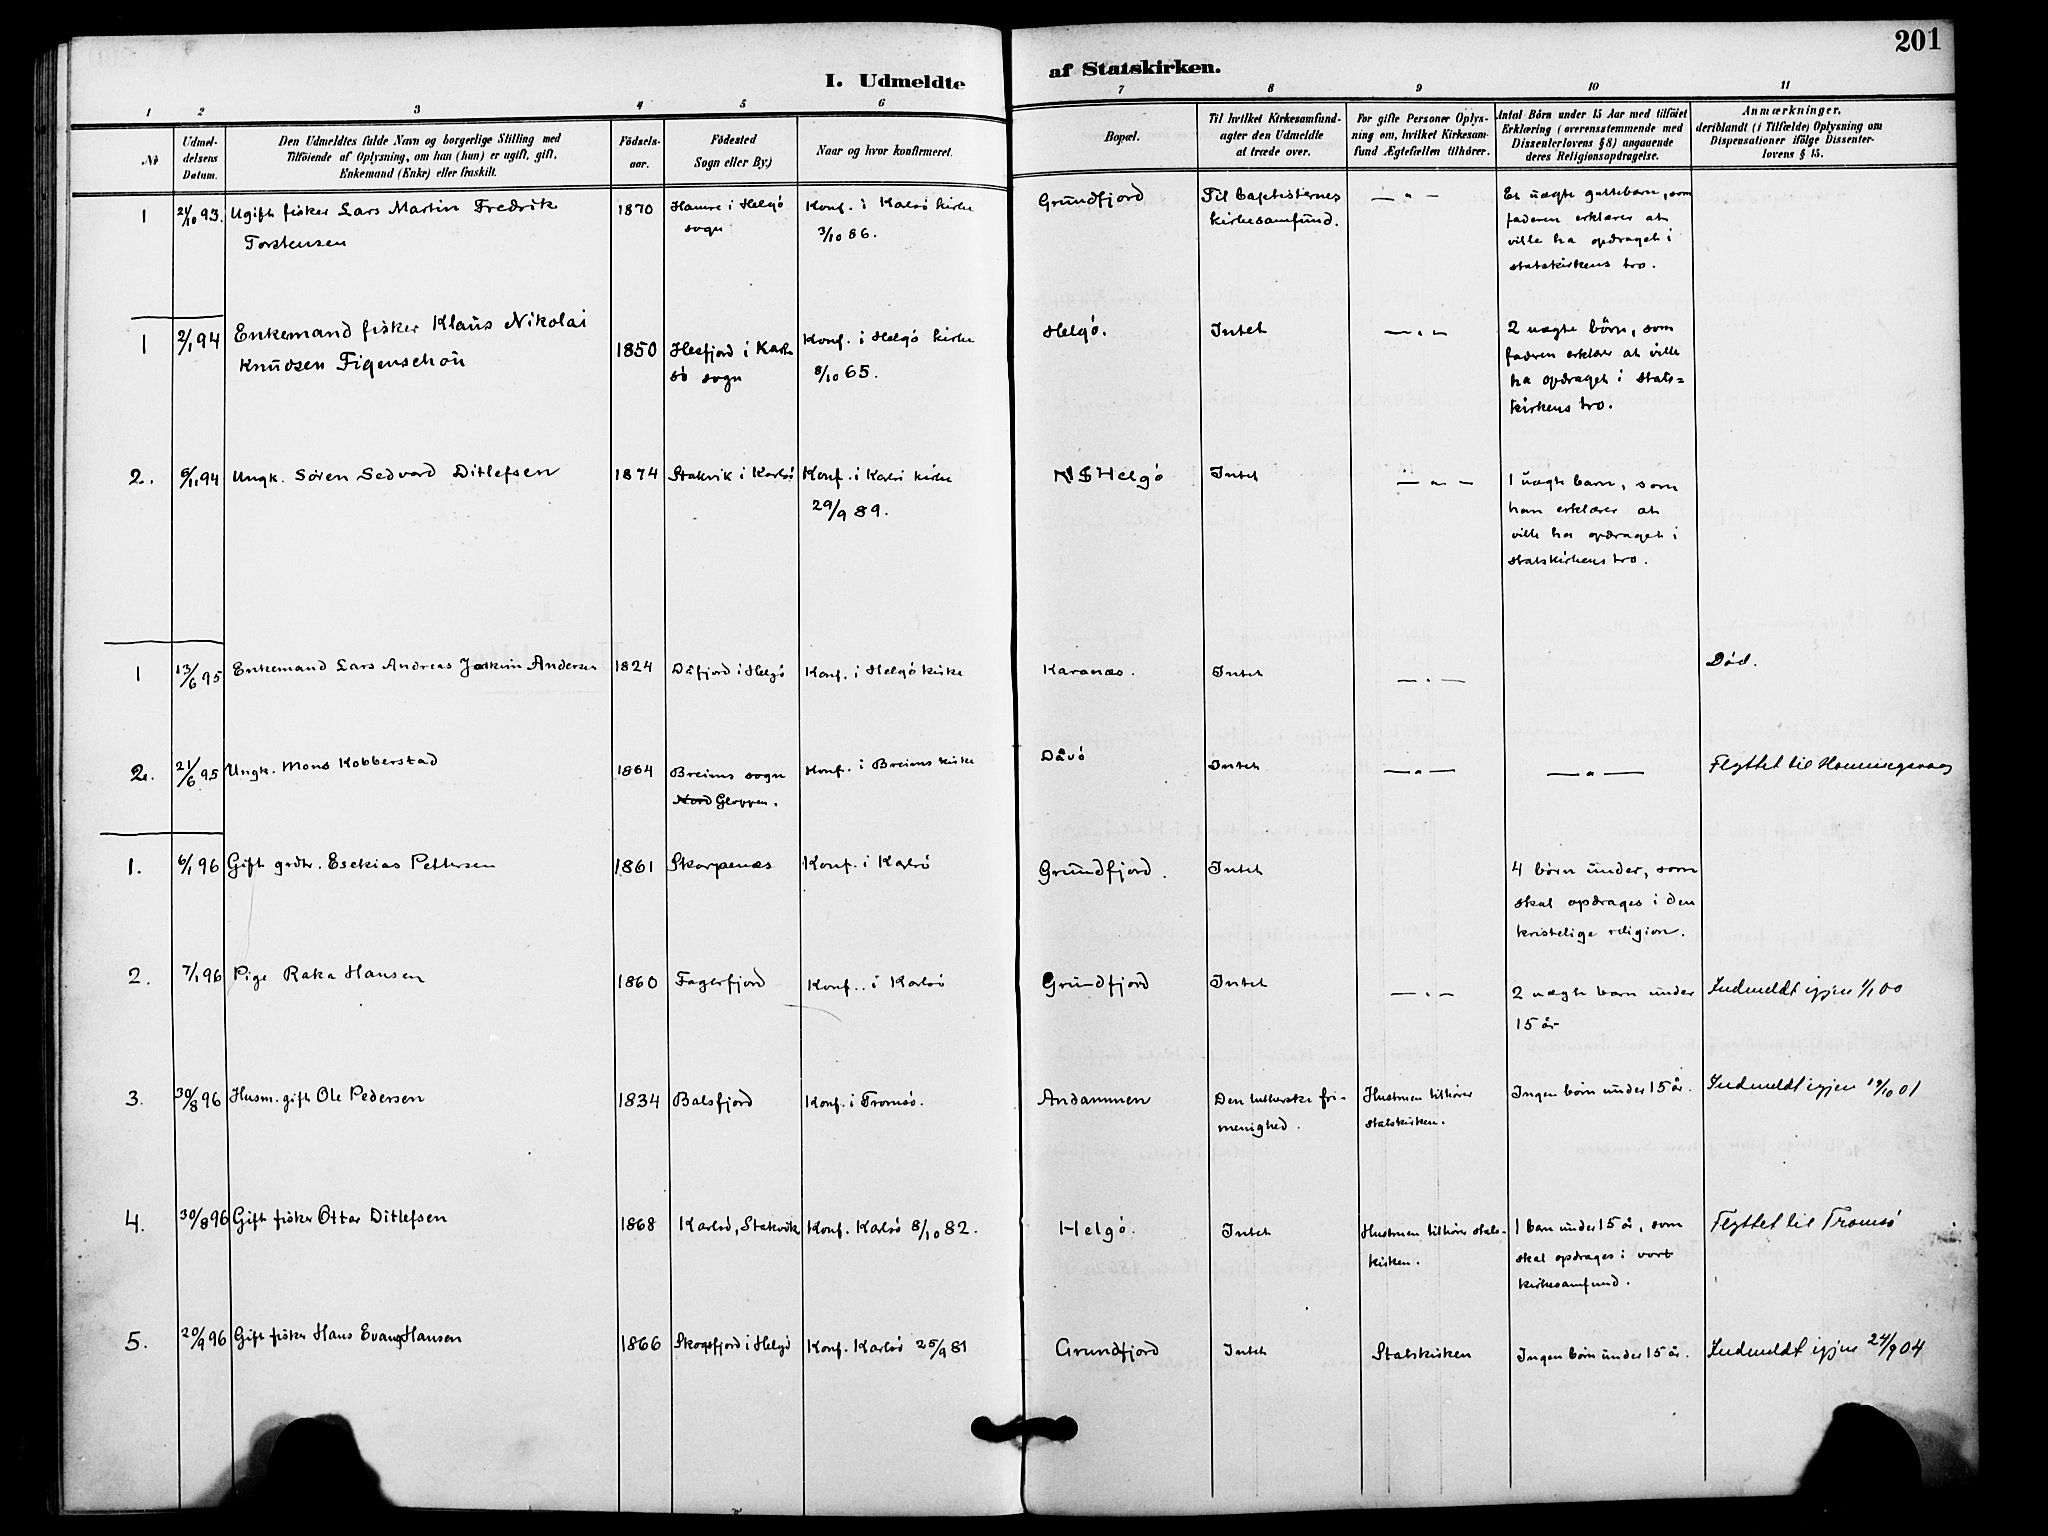 201
I. Udmeldte af Statskirken.
1 2 3 4 5 6 7 8 9 10 11
No
Udmel-
delsens
Datum.
Den Udmeldtes fulde Navn og borgerlige Stilling med
Tilföiende af Oplysning, om han (hun) er ugift, gift,
Enkemand (Enke) eller fraskilt.
Födsels-
aar.
Födested
Sogn eller By.)
Naar og hvor konfirmeret.
Bopæl.
Til hvilket Kirkesamfund-
agter den Udmeldte
at træde over.
For gifte Personer Oplys-
ning om, hvilket Kirkesam-
fund Ægtefællen tilhörer.
Antal Börn under 15 Aar med tilföiet
Erklæring (overensstemmende med
Dissenterlovens § 8) angaaende
deres Religionsopdragelse.
Anmærkninger,
deriblandt (i Tilfælde) Oplysning om
Dispensationer ifölge Dissenter-
lovens § 15.
1 21/10 93. Ugift fisker Lars Martin Fredrik
Torstensen
1870
Hamre i Helgö
sogn
Konf. i Karlsö kirke
3/10 86.
Grundfjord
Til baptisternes
kirkesamfund.
— " —
Et uægte guttebarn, som
faderen erklærer at
ville ha opdraget i
statskirkens tro.
1 2/1 94 Enkemand fisker Klaus Nikolai
Knudsen Figenschou
1850
Hesfjord i Karl-
sö sogn
Konf. i Helgö kirke
8/10 65.
Helgö.
Intet
— " —
2 uægte börn, som
faderen erklærer at ville
ha opdraget i stats=
kirkens tro.
2. 6/11 94 Ungk. Sören Sedvard Ditlefsen
1874
Stakvik i Karlsö
Konf. i Karlsö kirke
29/9 89.
NS Helgö
Intet
— " —
1 uægte barn, som
han erklærer at
ville ha opdraget i
statskirkens tro.
1 13/6 95 Enkemand Lars Andreas Joakim Andersen
1824
Dåfjord i Helgö
Konf. i Helgö kirke
Karanæs.
Intet
— " —
Död.
2. 21/6 95 Ungk. Mons Kobberstad
1864
Breims sogn
Nord Gloppen.
Konf. i Breims kirke
Dåvö
Intet
— " —
— " —
Flyttet til Honningsvaag
1. 6/1 96 Gift grdbr. Esekias Pettersen
1861
Skarpenæs
Konf. i Karlsö
Grundfjord.
Intet
4 börn under, som
skal opdrages i den
kristelige religion.
2. 7/1 96 Pige Raka Hansen
1860
Fagerfjord
Konf. i Karlsö
Grundfjord
Intet
— " —
2 uægte barn under
15 år
Indmeldt igjen 1/1 00
3. 30/8 96 Husm. gift Ole Pedersen
1834
Balsfjord
Konf. i Tromsö.
Andammen
Den lutherske fri-
menighed.
Hustruen tilhörer
statskirken.
Ingen börn under 15 år.
Indmeldt igjen 19/10 01
4. 30/8 96 Gift fisker Ottar Ditlefsen
1868
Karlsö, Stakvik
Konf. Karlsö 8/10 82.
Helgö.
Intet
Hustruen tilhörer stats-
kirken.
1 barn under 15 år, som
skal opdrages i vort
kirkesamfund.
Flyttet til Tromsö
5. 20/9 96 Gift fisker Hans Evang Hansen
1866
Skogsfjord i Helgö
Konf. Karlsö 25/9 81
Grundfjord
Intet
Statskirken
Ingen börn under 15 år.
Indmeldt igjen 24/9 04